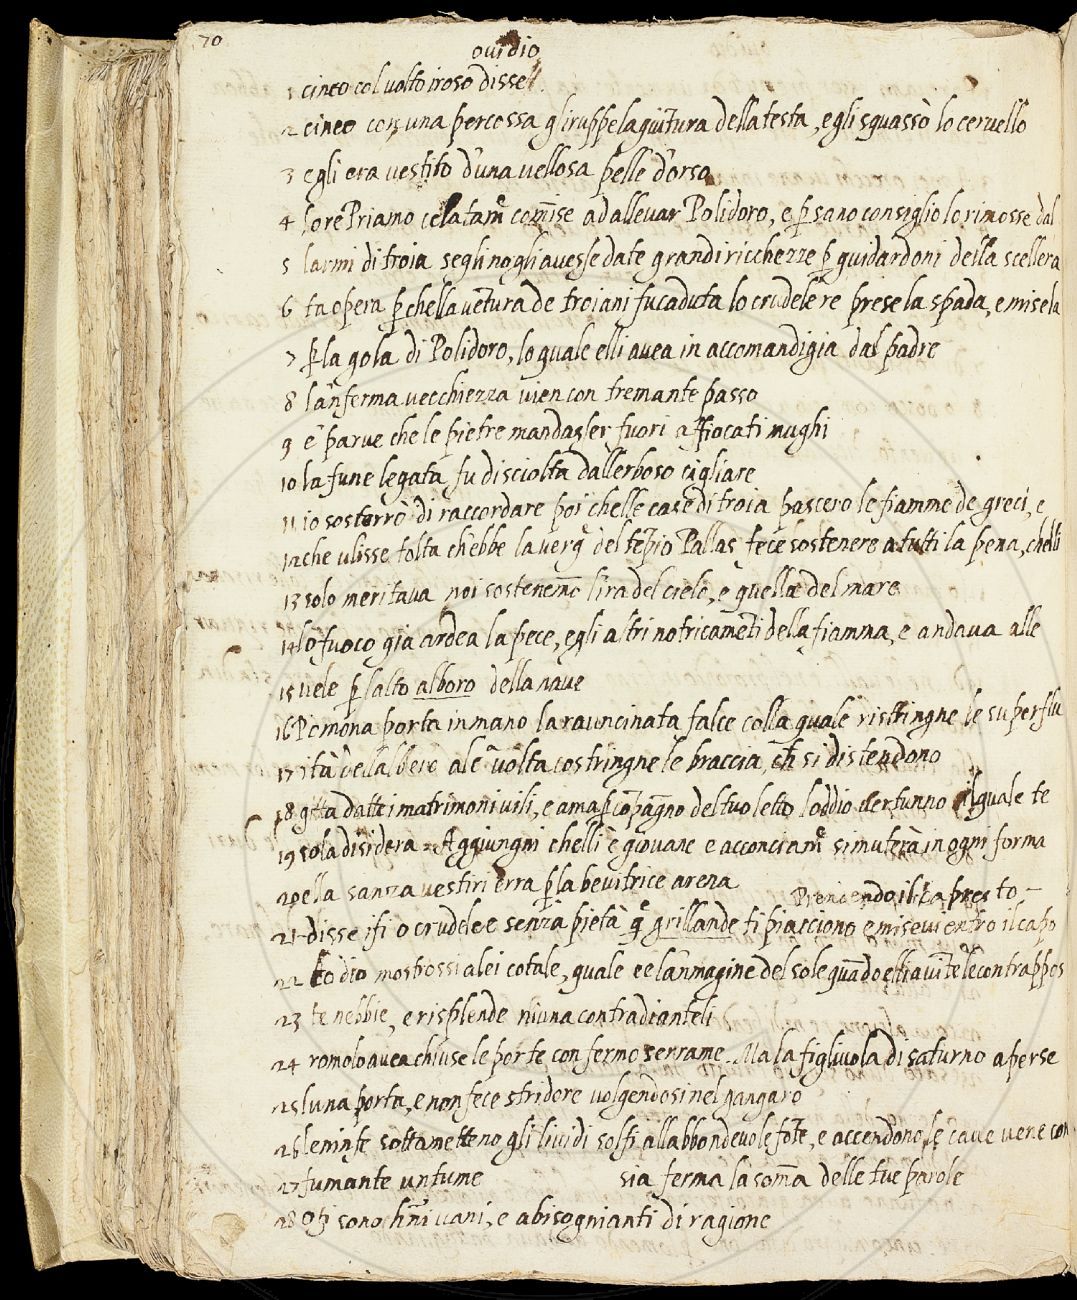 70
ouidio
1 cineo col volto iroso disse
2 cineo con una percossa gli ruppe la giūtura della testa, e gli squassò lo ceruello
3 egli era uestito d'una uellosa pelle d'orso
4 lo re Priamo celatam̄ cōmise ad alleuar Polidoro, e p sano consiglio lo rimosse dal
5 larmi di troia se gli nō gli auesse date grandi ricchezze p guidardoni della scellera
6 ta opera p chella uētura de troiani fu caduta lo crudele re prese la spada, e misela
7 p la gola di Polidoro, lo quale elli auea in accomandigia dal padre
8 la 'nferma uecchiezza uien con tremante passo
9 e' parue che le pietre mandasser fuori affiocati mughi
10 la fune legata fu disciolta dall erboso cigliare
11 io sosterrò di raccordare poi chelle case di troia pascero le fiamme de greci, e
12 che ulisse tolta ch'ebbe la uerḡ del tēpio Pallas fece sostenere a tutti la pena, chelli
13 solo meritaua noi sostenemo l'ira del cielo, e quella del mare
14 lo fuoco gia ardea la pece, e gli altri notricamēti della fiamma, e andaua alle
15 uele p l'alto alboro della naue
16 Pomona porta in mano la rauncinata falce colla quale ristringne le superflu
17 ità dell albero alc̄ uolta costringne le braccia, ch̄ si distendono
18 gitta date i matrimoni uili, e ama p cōpagno del tuo letto loddio uertunno il quale te
19 sola disidera Aggiungni chelli è giouane e acconciam̄ si muterà in ogni forma
20 ella sanza uestiri erra p la beuitrice arena
Prendendo il capresto
21 disse ifi o crudele e senza pietà q̄ grillande ti piacciono e miseui entro il capo
22 lo dio mostrossi a lei cotale, quale e e la 'nmagine del sole quādo elli a uīte le contrappos
23 te nebbie, e risplende niuna contradianteli
24 romolo auea chiuse le porte con fermo serrame. Ma la figliuola di saturno aperse
25 luna porta, e non fece stridore uolgendosi nel gangaro
26 le ninfe sottametteno gli liuidi solfi all abbondeuole fōte, e accendono le caue uene con
27 fumante untume sia ferma la soma delle tue parole
28 sono uani, e abisognianti di ragione